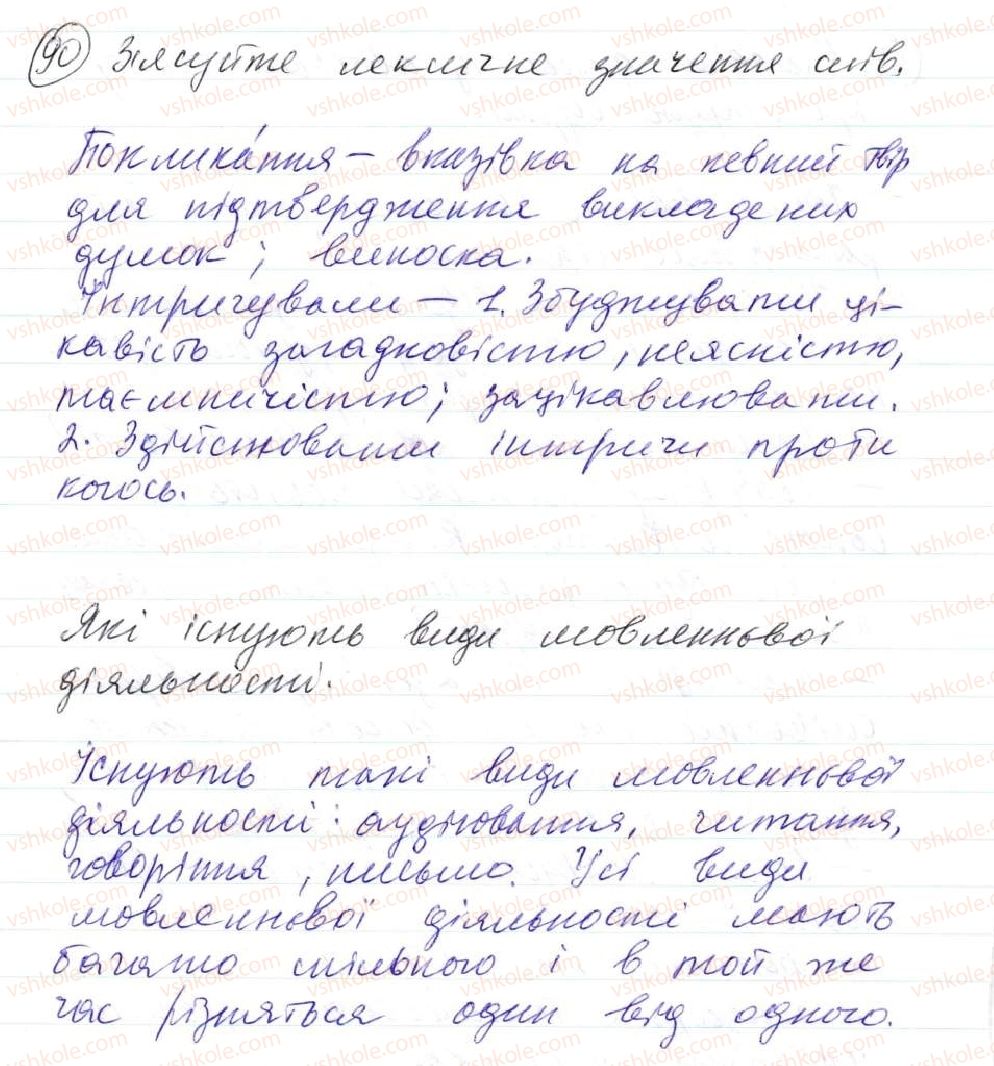 90 Зіясуйте лексичне значення слів.
Поклика́ння – вказівка на певний твір
для підтвердження викладених
думок; виноска.
Інтригувати – 1. Збуджувати ці-
кавість загадковістю, неясністю,
таємничістю; зацікавлювати.
2. Здійснювати інтриги проти
когось.
Які існують види мовленнєвої
діяльності.
Існують такі види мовленнєвої
діяльності: аудіювання, читання,
говоріння, письмо. Усі види
мовленнєвої діяльності мають
багато спільного і в той же
час різняться один від одного.